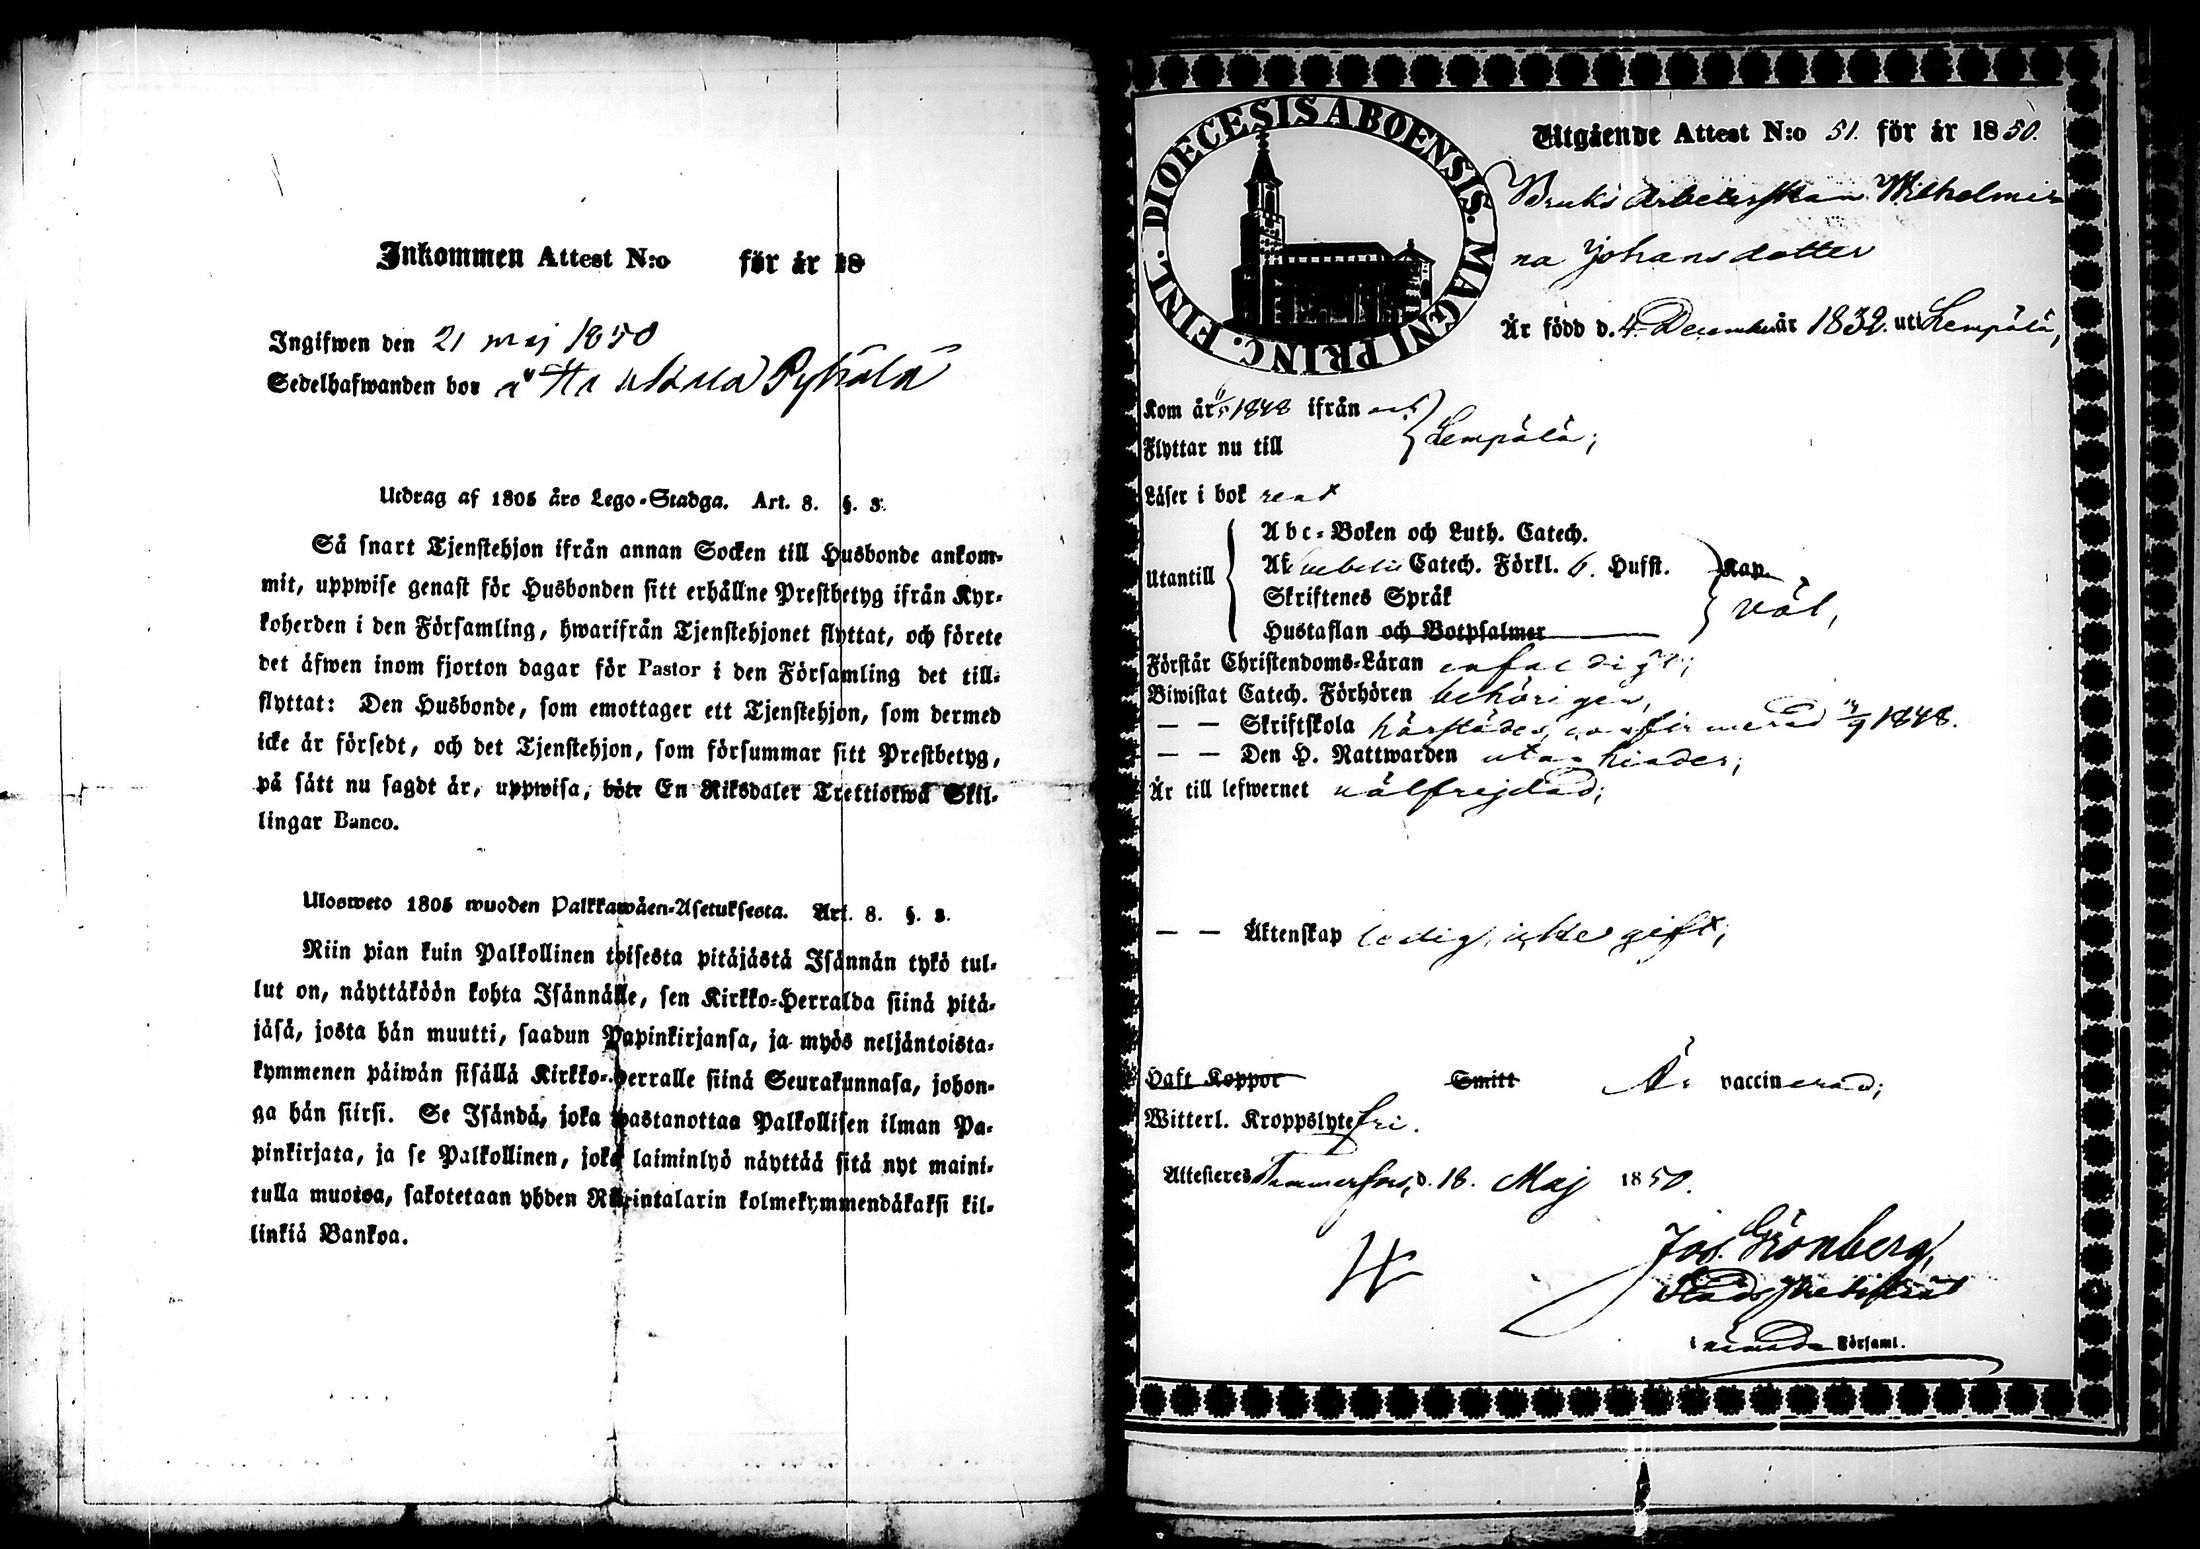 Inkommen Attest N:o för år 18
Ingifwen den 21 maj 1850
Sedelhafwanden bor å Pyhälä
Utdrag af 1805 års Lego-Stadga. Art. 8. §. 3.
Så snart Tjenstehjon ifrån annan Socken till Husbonde ankom-
mit, uppwise genast för Husbonden sitt erhållne Prestbetyg ifrån Kyr-
koherden i den Församling, hwarifrån Tjenstehjonet flyttat, och förete
det äfwen inom fjorton dagar för Pastor i den Församling det till-
flyttat: Den Husbonde, som emottager ett Tjenstehjon, som dermed
icke är försedt, och det Tjenstehjon, som försummar sitt Prestbetyg,
på sätt nu sagdt är, uppwisa, böte En Riksdaler Trettiotwå Skil-
lingar Banco.
Ulosweto 1805 wuoden Palkkawäen-Asetuksesta. Art. 8. §. 3.
Niin pian kuin Palkollinen toisesta pitäjästä Isännän tykö tul-
lut on, näyttäköön kohta Isännälle, sen Kirkko-Herralda siinä pitä-
jäsä, josta hän muutti, saadun Papinkirjansa, ja myös neljäntoista-
kymmenen päiwän sisällä Kirkko-Herralle siinä Seurakunnasa, johon-
ga hän siirsi. Se Isändä, joka wastanottaa Palkollisen ilman Pa-
pinkirjata, ja se Palkollinen, joka laiminlyö näyttää sitä nyt maini-
tulla muotoa, sakotetaan yhden Riikintalarin kolmekymmendäkaksi kil-
linkiä Bankoa.
DIOECESIS ABOENSIS. MAGNI PRINC. FINL.
Utgående Attest N:o 51. för år 1850.
Bruks Arbeterskan Wilhelmi-
na Johansdotter
Är född d. 4 December år 1832. uti Lempälä,
Kom år 1848 ifrån och
Flyttar nu till } Lempälä;
Läser i bok rent
Utantill { Abc-Boken och Luth. Catech.
Catech. Förkl. 6. Hufst. } Kap.
Skriftenes Språk väl,
Hustaflan och Botpsalmer
Förstår Christendoms-Läran enfaldigt;
Biwistat Catech. Förhören behörigen,
— — Skriftskola härstädes, confirmerad /9 1848.
— — Den H. Nattwarden utan hinder;
Är till lefwernet välfrejdad;
— — Äktenskap ledig, icke gift;
Haft Koppor Smitt Är vaccinerad;
Witterl. Kroppslyte fri.
Attesteres Tammerfors, d. 18. Maj 1850.
Jos. Grönberg,
Stads Predikant
i nämnda Församl.